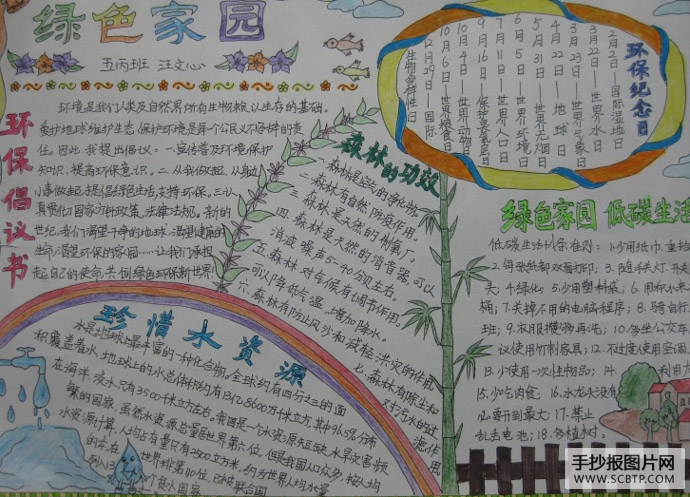 绿色家园
五丙班 汪文心
环保倡议书
环境是我们人类及自然界所有生物赖以生存的基础。
爱护地球维护生态,保护环境是每个公民义不容辞的责
任。因此,我提出倡议:一.宣传普及环境保护
知识,提高环保意识。二.从我做起,从身边
小事做起,提倡绿色生活,支持环保。三.认
真贯彻国家方针政策、法律法规。新的
世纪,我们渴望干净的地球,渴望健康的
生命,渴望环保的家园……让我们承担
起自己的使命,共创绿色环保新世界!
森林的功效
一.森林是空气的净化物。
二.森林有自然防疫作用。
三.森林是天然的制氧厂。
四.森林是天然的消音器,可以
消减噪声5-40分贝左右。
五.森林对气候有调节作用,
可以降低气温,增加降水。
六.森林有防止风沙和减轻洪灾的作用
七.森林有除尘和
对污水的过
滤作用
环保纪念日
2月2日—国际湿地日
3月22日—世界水日
3月23日—世界气象日
4月22日—地球日
5月31日—世界无烟日
6月5日—世界环境日
7月11日—世界人口日
9月16日—保护臭氧层日
10月4日—世界动物日
10月16日—世界粮食日
12月29日—国际
生物多样性日
绿色家园 低碳生活
低碳生活行为准则:1.少用纸巾,重拾
2.每张纸都双面打印;3.随手关灯、开
关;4.绿化;5.少用塑料袋;6.用布
桶;7.关掉不用的电脑程序;8.骑自行
班;9.衣服攒够再洗;10.多坐公交车
议使用竹制家具;12.不过度使用空调
13.少使用一次性物品;14.利用
15.少吃肉食;16.水龙头没有
必要开到最大;17.禁止
乱丢电池;18.多植树。
珍惜水资源
水是地球上最丰富的一种化合物,全球约有四分之三的面
积覆盖着水,地球上的水总体积约有13亿8600万千立方,其中96.5%分布
在海洋,淡水只有3500千立方左右。我国是一个水资源短缺,水旱灾害频
繁的国家,虽然水资源总量居世界第六位,但是我国人口众多,按人均
水资源计算,人均占有量只有2500立方米,约为世界人均水量
的1/4,在世界排第110位,已被联合国
列为13个贫水国家
手抄报图片网
WWW.SCBTP.COM